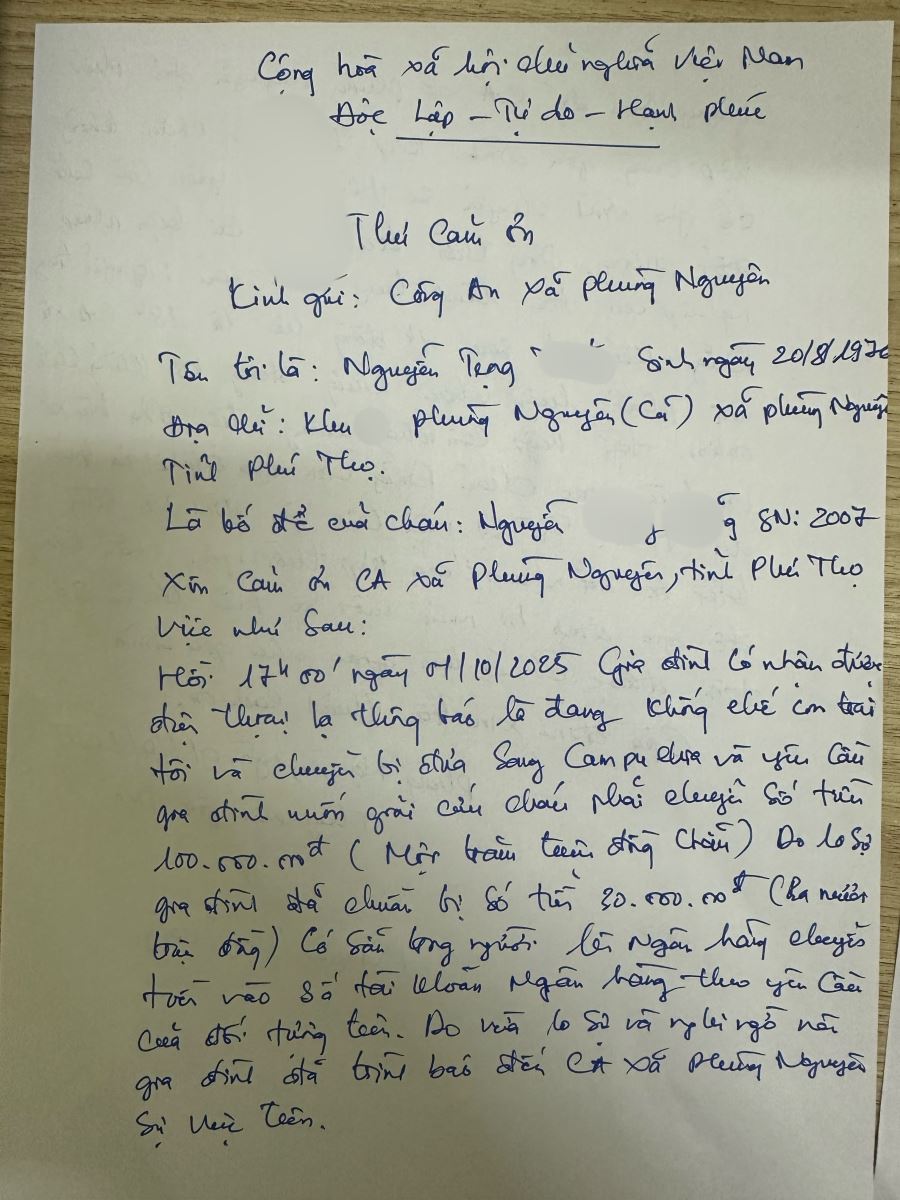 Cộng hoà xã hội chủ nghĩa Việt Nam
Độc lập - Tự do - Hạnh phúc
Thư Cảm ơn
Kính gửi: Công An xã Phùng Nguyên
Tên tôi là: Nguyễn Trọng Sinh ngày 20/8/1976
Địa chỉ: Khu Phùng Nguyên (Cũ) xã Phùng Nguyên
Tỉnh Phú Thọ.
Là bố đẻ của cháu: Nguyễn SN: 2007
Xin Cảm ơn CA xã Phùng Nguyên, tỉnh Phú Thọ
Việc như Sau:
Hồi 17h00' ngày 01/10/2025 Gia đình có nhận được
điện thoại lạ thông báo là đang khống chế con trai
tôi và chuẩn bị đưa Sang Campuchia và yêu Cầu
gia đình muốn giải cứu cháu phải chuyển Số tiền
100.000.000đ (Một trăm triệu đồng chẵn) Do lo Sợ
gia đình đã chuẩn bị số tiền 30.000.00đ (Ba mươi
triệu đồng) Có Sẵn trong người lên Ngân hàng chuyển
tiền vào số tài khoản Ngân hàng theo yêu Cầu
Của đối tượng trên. Do vừa lo Sợ và nghi ngờ nên
gia đình đã trình báo đến CA xã Phùng Nguyên
Sự việc trên.